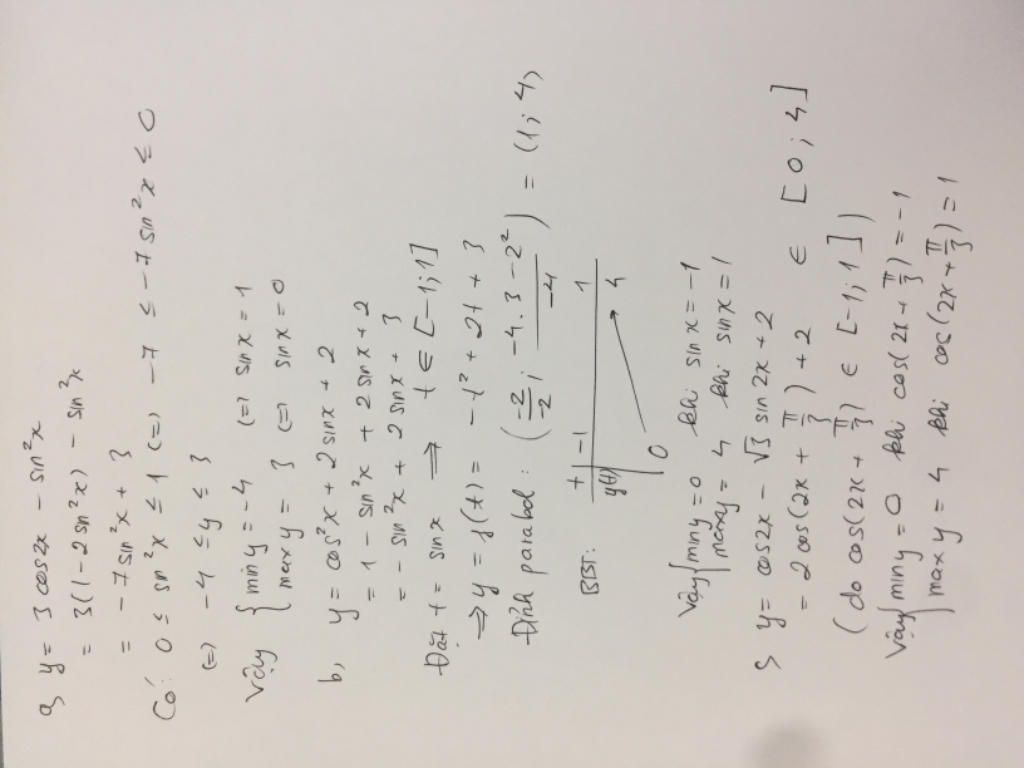 a, y = 3 cos2x - sin²x
= 3(1 - 2sin²x) - sin²x
= -7sin²x + 3
Có: 0 ≤ sin²x ≤ 1 (=) -7 ≤ -7sin²x ≤ 0
(=) -4 ≤ y ≤ 3
Vậy { min y = -4 (=) sinx = 1
max y = 3 (=) sinx = 0
b, y = cos²x + 2sinx + 2
= 1 - sin²x + 2sinx + 2
= -sin²x + 2sinx + 3
Đặt t = sinx => t ∈ [-1;1]
=> y = f(t) = -t² + 2t + 3
Đỉnh parabol: (-2/-2; -4.3-2²/-4) = (1; 4)
BBT:
t -1 1
y(t) 0 4
Vậy { min y = 0 khi sinx = -1
max y = 4 khi sinx = 1
c, y = cos2x - √3 sin2x + 2
= 2cos(2x + π/3) + 2 ∈ [0; 4]
(do cos(2x + π/3) ∈ [-1; 1])
Vậy { min y = 0 khi cos(2x + π/3) = -1
max y = 4 khi cos(2x + π/3) = 1